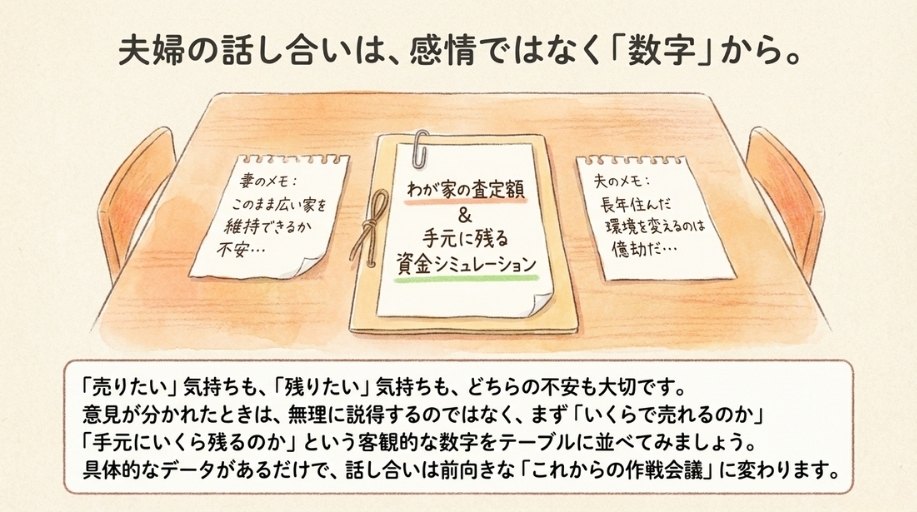 夫婦の話し合いは、感情ではなく「数字」から。
妻のメモ：
このまま広い家を
維持できるか
不安…
わが家の査定額
&
手元に残る
資金シミュレーション
夫のメモ：
長年住んだ
環境を変えるのは
億劫だ…
「売りたい」気持ちも、「残りたい」気持ちも、どちらの不安も大切です。
意見が分かれたときは、無理に説得するのではなく、まず「いくらで売れるのか」
「手元にいくら残るのか」という客観的な数字をテーブルに並べてみましょう。
具体的なデータがあるだけで、話し合いは前向きな「これからの作戦会議」に変わります。